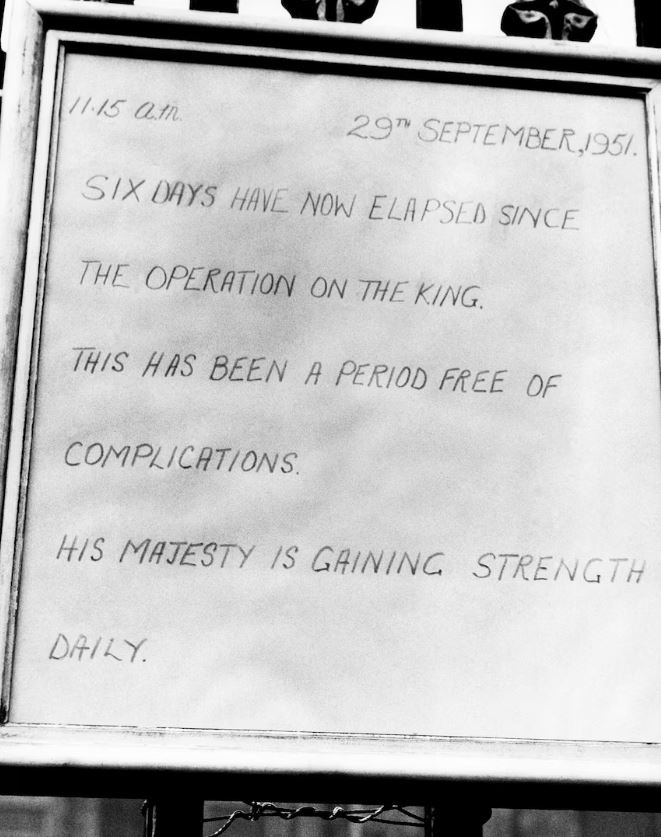 11·15 a.m.
29TH SEPTEMBER, 1951.
SIX DAYS HAVE NOW ELAPSED SINCE
THE OPERATION ON THE KING.
THIS HAS BEEN A PERIOD FREE OF
COMPLICATIONS.
HIS MAJESTY IS GAINING STRENGTH
DAILY.